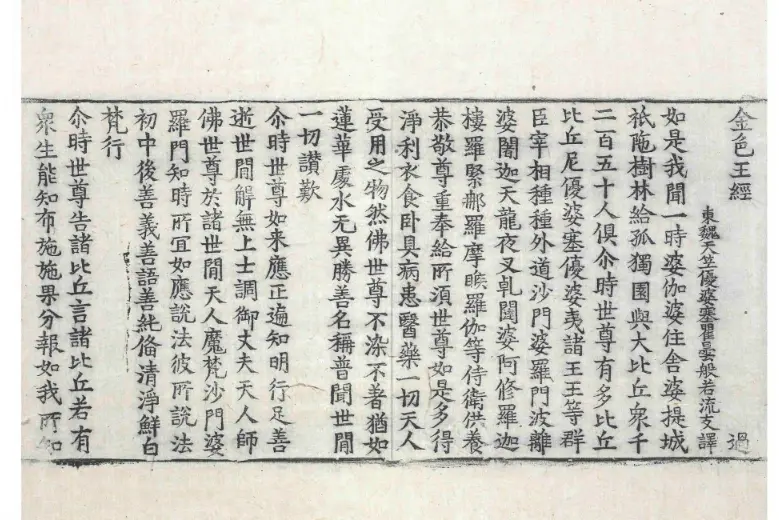 金色王經 過
東魏天竺優婆塞瞿曇般若流支譯
如是我聞一時婆伽婆住舍婆提城
祇陁樹林給孤獨園與大比丘衆千
二百五十人俱尒時世尊有多比丘
比丘尼優婆塞優婆夷諸王王等群
臣宰相種種外道沙門婆羅門波離
婆闍迦天龍夜叉乹闥婆阿修羅迦
樓羅緊那羅摩睺羅伽等侍衛供養
恭敬尊重奉給所湏世尊如是多得
淨利衣食卧具病患醫藥一切天人
受用之物然佛世尊不染不著猶如
蓮華處水无異勝善名稱普聞世閒
一切讃歎
尒時世尊如来應正遍知明行足善
逝世閒解無上士調御丈夫天人師
佛世尊於諸世閒天人魔梵沙門婆
羅門知時所宜如應說法彼所說法
初中後善義善語善純俻清淨鮮白
梵行
尒時世尊告諸比丘言諸比丘若有
衆生能知布施施果分報如我所知